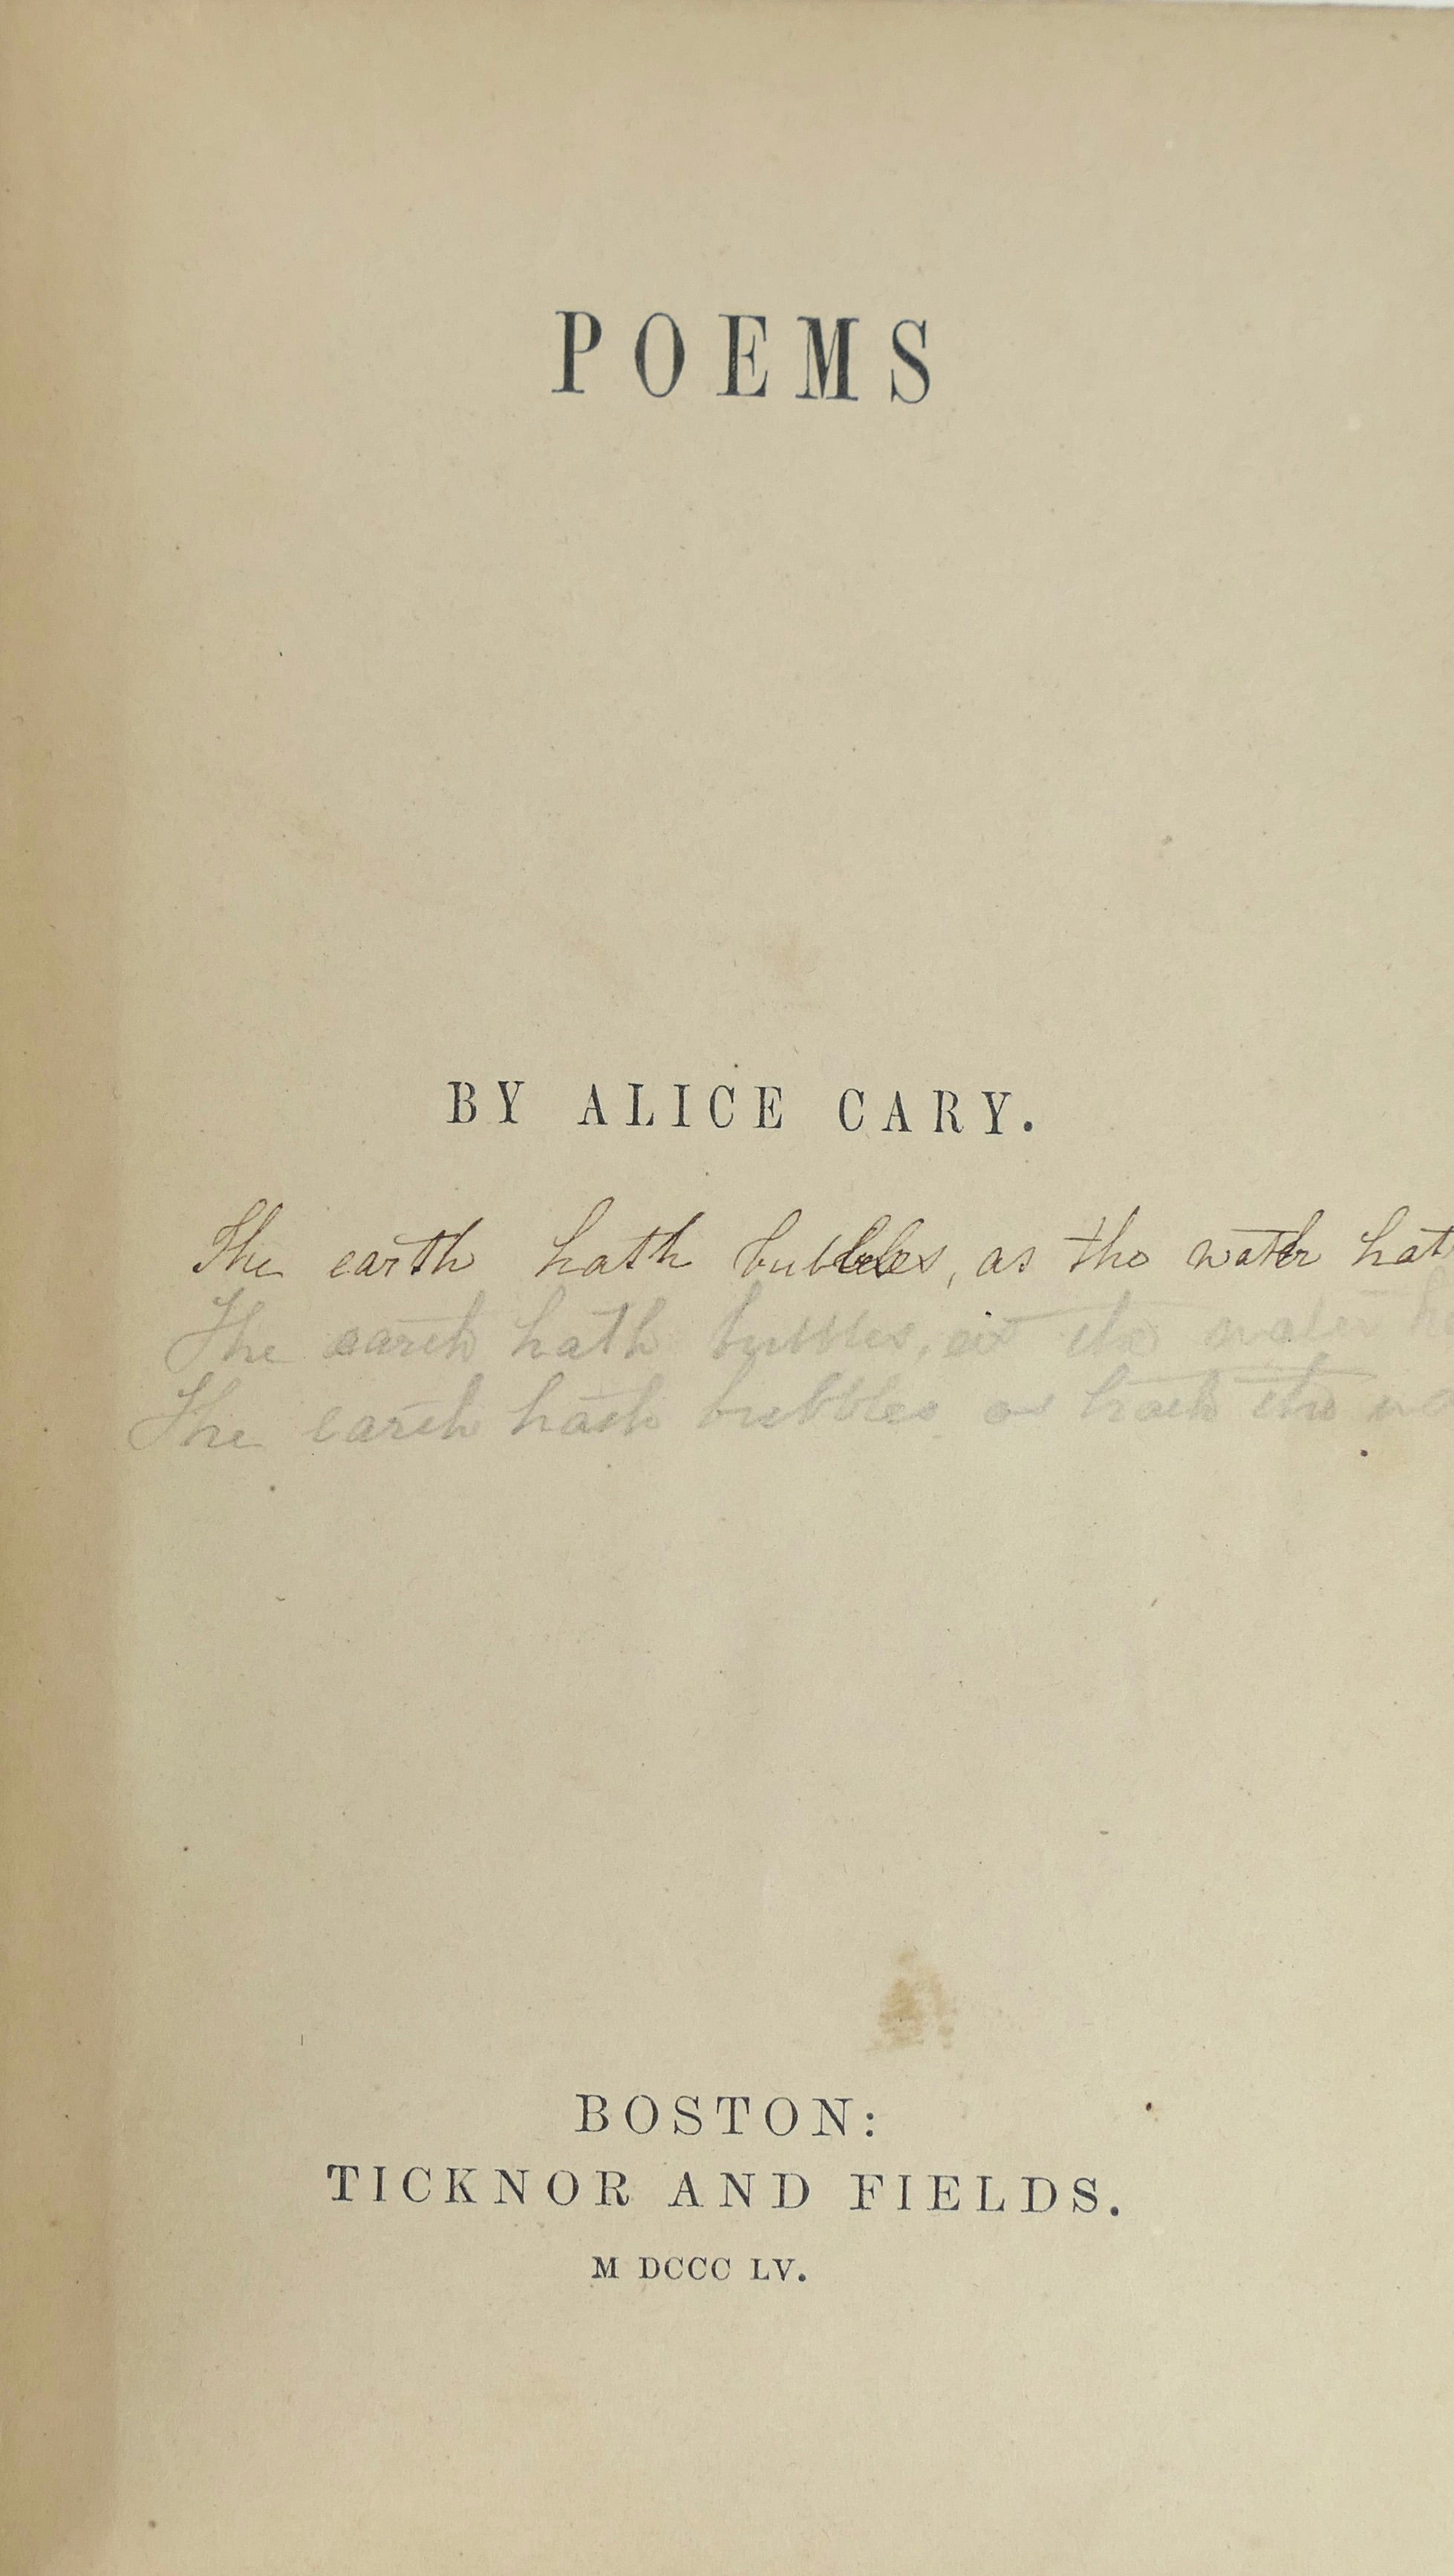 POEMS
BY ALICE CARY.
The earth hath bubbles, as the water hat
The earth hath bubbles, as the water h
The earth hath bubbles as hath the wa
BOSTON:
TICKNOR AND FIELDS.
M DCCC LV.